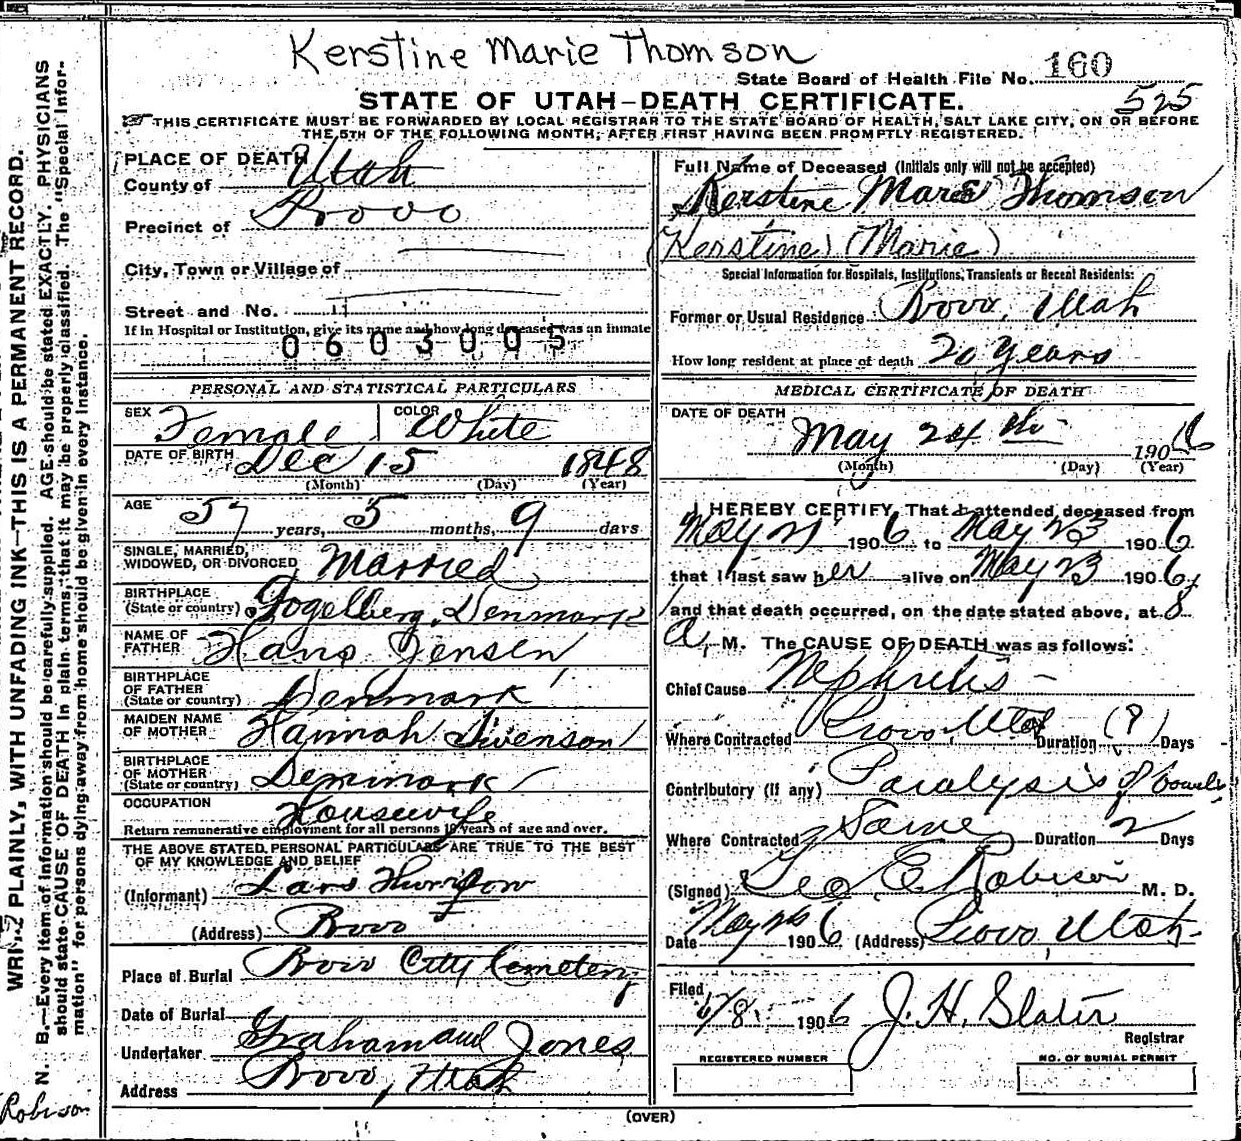 Kerstine Marie Thomson
State Board of Health File No. 160
525
STATE OF UTAH—DEATH CERTIFICATE.
THIS CERTIFICATE MUST BE FORWARDED BY LOCAL REGISTRAR TO THE STATE BOARD OF HEALTH, SALT LAKE CITY, ON OR BEFORE
THE 5TH OF THE FOLLOWING MONTH, AFTER FIRST HAVING BEEN PROMPTLY REGISTERED.
PLACE OF DEATH
County of Utah
Precinct of Provo
City, Town or Village of
Street and No. 11
If in Hospital or Institution, give its name and how long deceased was an inmate
0603005
PERSONAL AND STATISTICAL PARTICULARS
SEX Female COLOR White
DATE OF BIRTH Dec 15 1848
(Month) (Day) (Year)
AGE 57 years, 5 months, 9 days
SINGLE, MARRIED,
WIDOWED, OR DIVORCED Married
BIRTHPLACE
(State or country) Fogelberg, Denmark
NAME OF
FATHER Hans Jensen
BIRTHPLACE
OF FATHER
(State or country) Denmark
MAIDEN NAME
OF MOTHER Hannah Swenson
BIRTHPLACE
OF MOTHER
(State or country) Denmark
OCCUPATION Housewife
Return remunerative employment for all persons 10 years of age and over.
THE ABOVE STATED PERSONAL PARTICULARS ARE TRUE TO THE BEST
OF MY KNOWLEDGE AND BELIEF
(Informant) Lars
(Address) Provo
Place of Burial Provo City Cemetery
Date of Burial
Undertaker Graham and Jones
Address Provo, Utah
Full Name of Deceased (Initials only will not be accepted)
Kerstine Marie Thomson
(Kerstine) (Marie)
Special Information for Hospitals, Institutions, Transients or Recent Residents:
Former or Usual Residence Provo, Utah
How long resident at place of death 20 years
MEDICAL CERTIFICATE OF DEATH
DATE OF DEATH
May 24th 1906
(Month) (Day) (Year)
I HEREBY CERTIFY, That I attended deceased from
May 21 1906 to May 23 1906
that I last saw her alive on May 23 1906,
and that death occurred, on the date stated above, at 8
A. M. The CAUSE OF DEATH was as follows:
Chief Cause Nephritis -
Where Contracted Provo Utah Duration (?) Days
Contributory (If any) Paralysis of bowels
Where Contracted Same Duration 2 Days
(Signed) Geo E. Robison M. D.
Date May 26 1906 (Address) Provo, Utah.
Filed 6/8 1906 J. H. Slater
Registrar
REGISTERED NUMBER NO. OF BURIAL PERMIT
(OVER)
PLAINLY, WITH UNFADING INK—THIS IS A PERMANENT RECORD.
N. B.—Every item of information should be carefully supplied. AGE should be stated EXACTLY. PHYSICIANS
should state CAUSE OF DEATH in plain terms, that it may be properly classified. The "Special Infor-
mation" for persons dying away from home should be given in every instance.
Robison